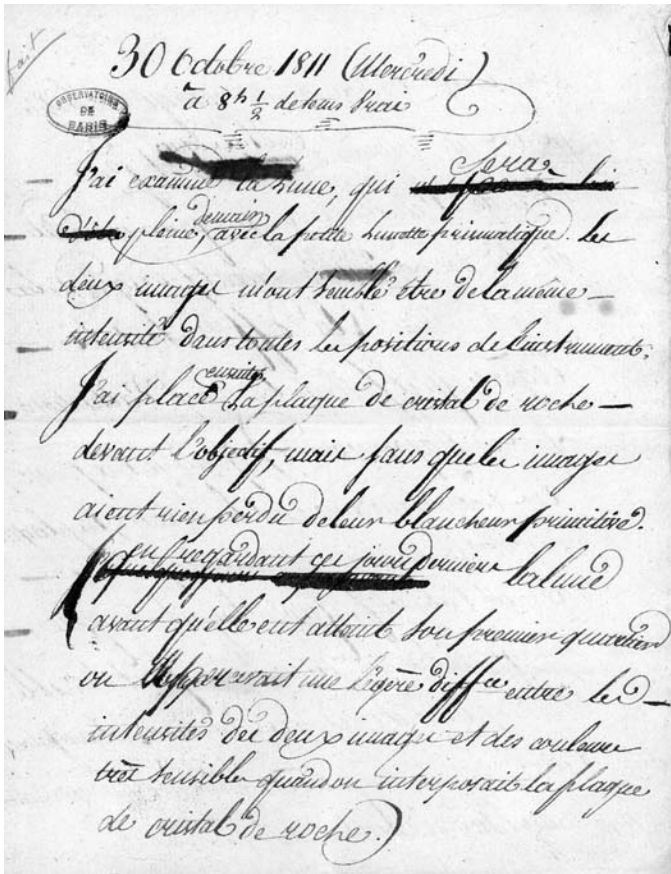 fait
30 Octobre 1811 (Mercredi)
à 8h 1/2 de tems vrai
OBSERVATOIRE DE PARIS
J'ai examiné la Lune, qui sera
pleine demain, avec la petite Lunette prismatique. les
deux images m'ont semblé être de la même
intensité dans toutes les positions de l'instrument.
J'ai placé ensuite la plaque de cristal de roche
devant l'objectif, mais sans que les images
aient rien perdu de leur blancheur primitive.
(en regardant ces jours derniers la lune
avant qu'elle eut atteint son premier quartier
on appercevait une légère diffce entre les
intensités des deux images et des couleurs
très sensibles quand on interposait la plaque
de cristal de roche.)